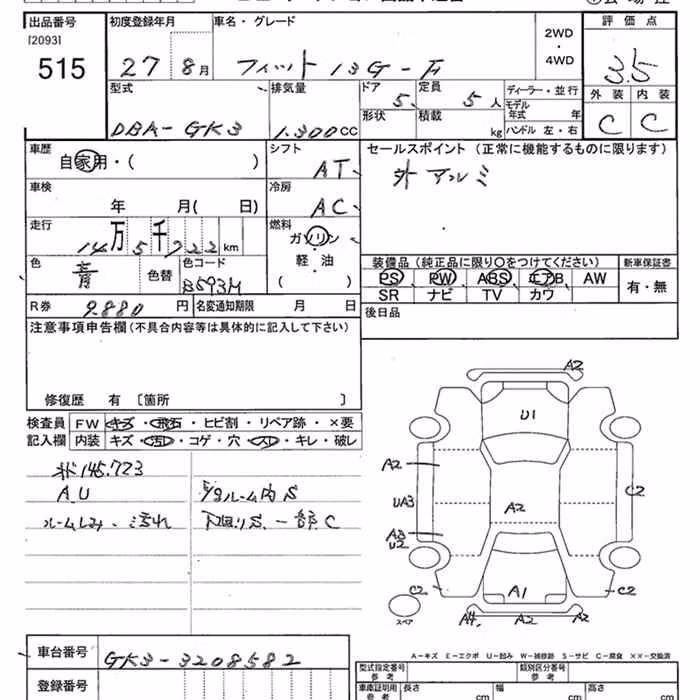 出品番号 初度登録年月 車名・グレード 2WD・4WD 評価点
[2093]
515 27 8月 フィット 13G-F 3.5
型式 排気量 ドア 5 定員 5人 ディーラー・並行 外装 内装
DBA-GK3 1.300cc 形状 積載 kg モデル年式 年 ハンドル 左・右 C C
車歴 シフト セールスポイント (正常に機能するものに限ります)
自家用・( ) AT 外アルミ
車検 冷房
年 月( 日) AC
走行 燃料
14万5千722km ガソリン
軽・油
( )
色 色替 色コード 装備品 (純正品に限り○をつけてください) 新車保証書
青 B593M PS PW ABS エアB AW 有・無
SR ナビ TV カワ
R券 9.880円 名変通知期限 月 日 後日品
注意事項申告欄 (不具合内容等は具体的に記入して下さい)
修復歴 有 [箇所 ]
検査員 FW キズ・飛石・ヒビ割・リペア跡・×要
記入欄 内装 キズ・汚れ・コゲ・穴・スレ・キレ・破レ
145.723
A.U ルーム内S
ルームしみ・汚れ 下廻りS.一部C
A2
U1
A2
UA3 A2 C2
A3
U2
C2 A1 C2
スペア A4. A2 A2
A-キズ E-エクボ U-凹み W-補修跡 S-サビ C-腐食 ××-交換済
車台番号 GK3-3208582
登録番号
型式指定番号 参考 類別区分番号 参考
車庫証明用 参考 長さ cm 幅 cm 高さ cm